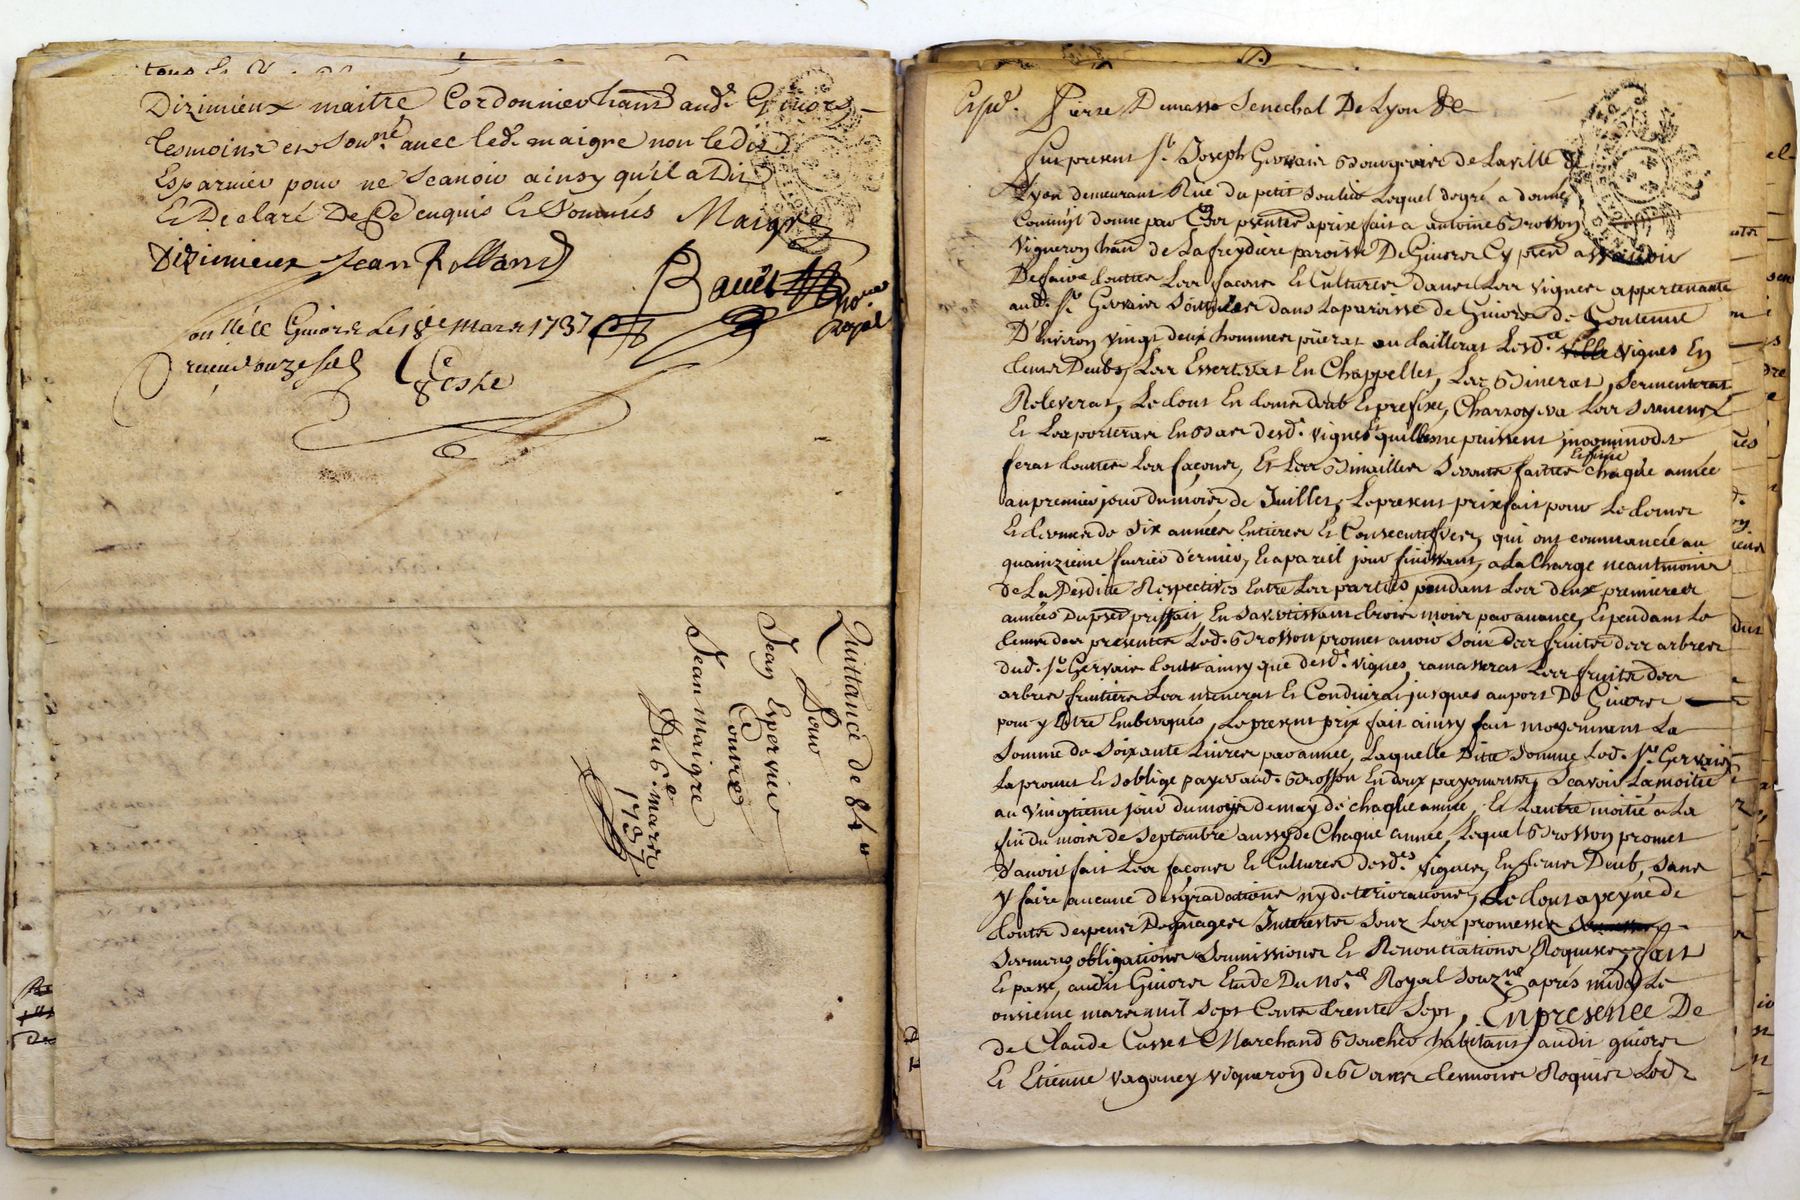 Dizimieux maitre Cordonnier habt. aud. Givors
tesmoins et Sousné. avec led. maigre non led.
Esparvier pour ne Scavoir ainsy qu'il a Dit
Et Declaré De Ce enquis Et Sommés Maigre
Dizimieux Jean Rolland
Bauet Nore.
Royal
Conllé a Givors Le 18e mars 1737
receu douze sols
Geste
Quittance de 84 ll
Pour
Jean Espervier
Contre
Jean maigre
Du 6e. mars
1737
Expd. Pierre Dumas Senechal De Lyon &c
Fut present Sr. Joseph Gervais Bourgeois de La ville de
Lyon demeurant Rue du petit Soulier Lequel de gré a donné
Comm'il donne par Ces presentes a prix fait a antoine Brosson
Vigneron habt. de La freydiere paroisse De Givors Cy present assavoir
De faire touttes Les façons Et Cultures dans Les Vignes appartenante
aud. Sr. Gervais Scittuées dans La paroisse de Givors de Contenue
D'Environ vingt deux hommes, taillerat Lesd. Vignes En
tems Deub, Les Essertirat En Chappellet, Les Binerat,
Releverat, Le tout En tems deub Et prefixe, Les Sarmens
Et Les porteras En Bas desd. Vignes qu'illes ne puissent incommoder
ferat touttes Les façons, Et Les Binailles Seront faittes Et finie chaque année
au premier jour du mois de Juillet, Le present prix fait pour Le tems
Et terme de Six années Entieres Et Consecutifves, qui ont commancée au
quainzieme fevrier dernier, Et a pareil jour finissant, a La Charge neantmoins
De La Desditte Respectives Entre Les parties pendant Les deux premieres
années Du present prixfait En S'avertissant trois mois par avance, Et pendant Le
tems des presentes Led. Brosson promet avoir Soin des fruits des arbres
dud. Sr. Gervais tout ainsy que desd. Vignes, ramasserat Les fruits des
arbres fruitiers Les menerat Et Conduirat jusques au port De Givors
pour y Estre Embarqués, Le present prix fait ainsy fait moyennant La
Somme de Soixante Livres par année, Laquelle Ditte Somme Led. Sr. Gervais
La promet Et S'oblige payer aud. Brosson En deux payements, Scavoir La moitié
au Vingtieme jour du moys de may de chaque année, Et L'autre moitié a La
fin du mois de Septembre aussy de Chaque année, Lequel Brosson promet
D'avoir fait Les façons Et Cultures desd. Vignes, En tems Deub, Sans
y faire aucune desgradations ny deteriorations, Le tout a peyne de
touts despens Dommages Interests Sous Les promesses
Serments obligations Soumissions Et Renontiations Requises, fait
Et passé, audit Givors Etude Du Nore. Royal Souzné. aprés midy Le
onzieme mars mil Sept Cents trente Sept, En presence De
de Claude Cusset Marchand Boucher habitant audit givors
Et Etienne Vaganey Vigneron de Bans tesmoins Requis Led.